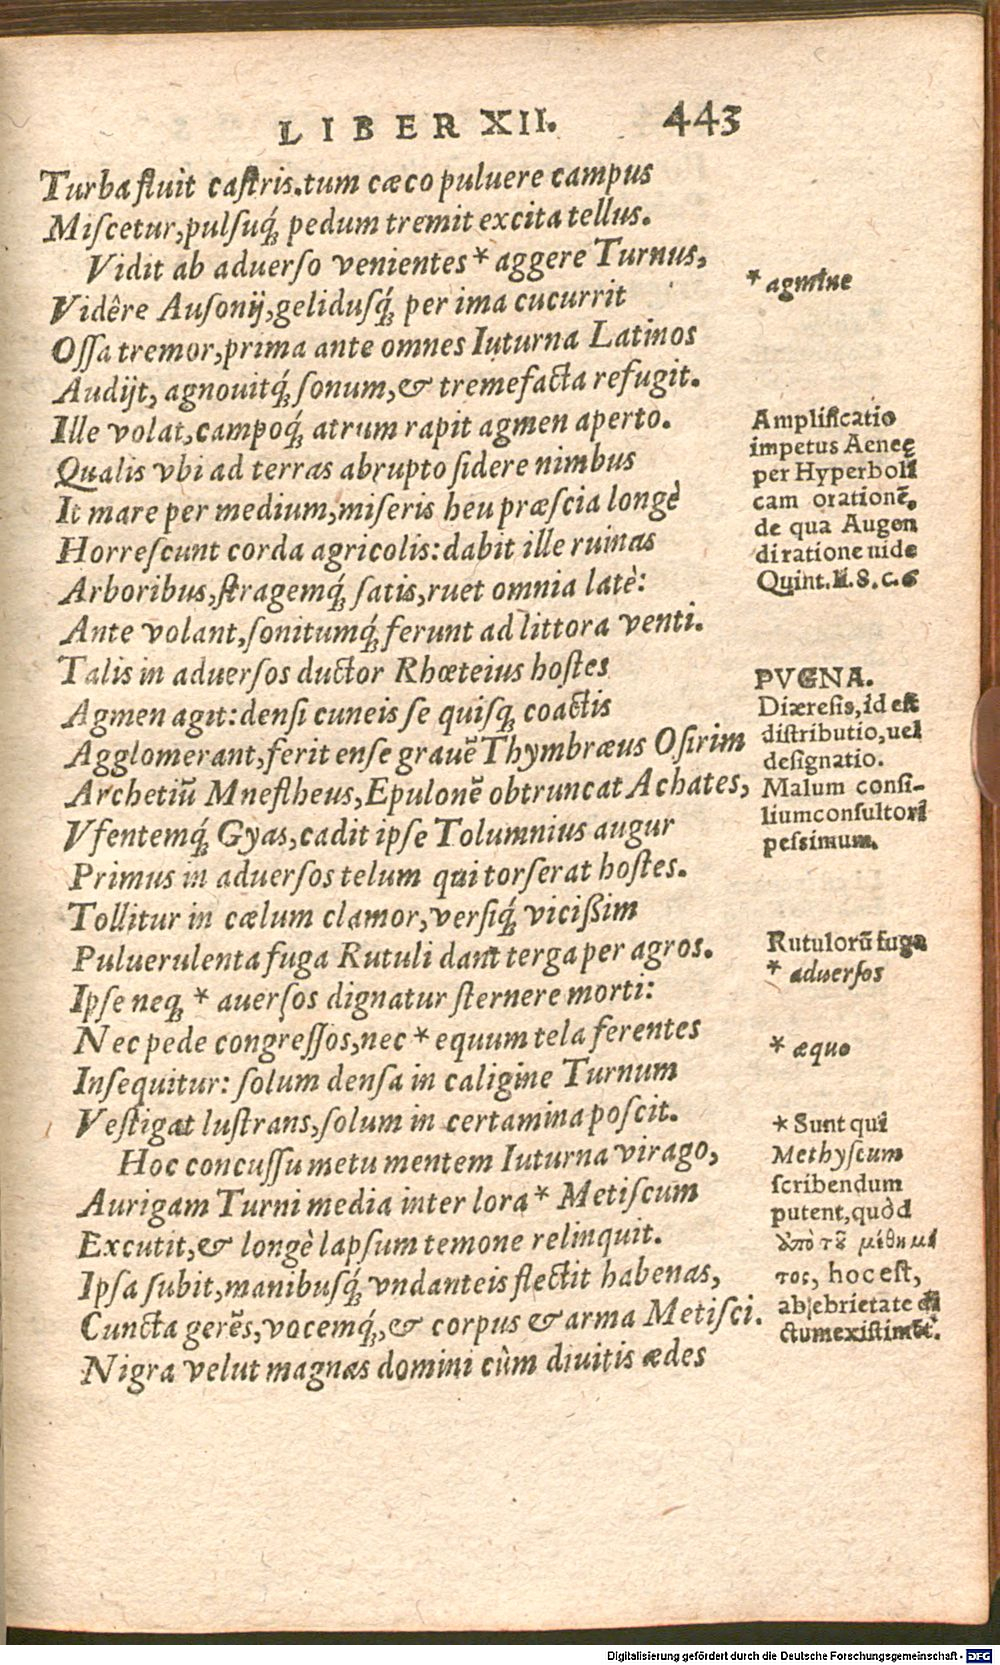 LIBER XII. 443
Turba fluit castris. tum cæco puluere campus
Miſcetur, pulſuq́; pedum tremit excita tellus.
Vidit ab aduerſo venientes * aggere Turnus,
* agmine
Vidêre Auſonij, gelidusq́; per ima cucurrit
Oſſa tremor, prima ante omnes Iuturna Latinos
Audijt, agnouitq́; ſonum, & tremefacta refugit.
Ille volat, campoq́; atrum rapit agmen aperto.
Qualis vbi ad terras abrupto ſidere nimbus
It mare per medium, miſeris heu præſcia longè
Horreſcunt corda agricolis: dabit ille ruinas
Arboribus, ſtragemq́; ſatis, ruet omnia latè:
Ante volant, ſonitumq́; ferunt ad littora venti.
Amplificatio
impetus Aeneę
per Hyperboli
cam orationē,
de qua Augen
di ratione uide
Quint. li. 8. c. 6
Talis in aduerſos ductor Rhœteius hoſtes
Agmen agit: denſi cuneis ſe quiſq; coactis
Agglomerant, ferit enſe grauē Thymbræus Oſirim
Archetiũ Mneſtheus, Epulonē obtruncat Achates,
Vfentemq́; Gyas, cadit ipſe Tolumnius augur
Primus in aduerſos telum qui torſerat hoſtes.
PVGNA.
Diæreſis, id eſt
diſtributio, uel
deſignatio.
Malum conſi-
lium conſultori
peſsimum.
Tollitur in cælum clamor, verſiq́; viciſsim
Puluerulenta fuga Rutuli dant terga per agros.
Rutulorũ fuga
Ipſe neq; * auerſos dignatur ſternere morti:
* aduerſos
Nec pede congreſſos, nec * equum tela ferentes
* æquo
Inſequitur: ſolum denſa in caligine Turnum
Veſtigat luſtrans, ſolum in certamina poſcit.
Hoc concuſſu metu mentem Iuturna virago,
Aurigam Turni media inter lora * Metiſcum
Excutit, & longè lapſum temone relinquit.
Ipſa ſubit, manibusq́; vndanteis flectit habenas,
Cuncta gerēs, vocemq́;, & corpus & arma Metiſci.
Nigra velut magnas domini cùm diuitis ædes
* Sunt qui
Methyſcum
ſcribendum
putent, quòd
ἀπὸ τȣ͂
τος, hoc eſt,
ab ebrietate di
ctum exiſtimēt.
Digitalisierung gefördert durch die Deutsche Forschungsgemeinschaft - DFG